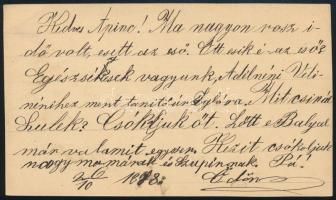 Kedves Ápinc! Ma nagyon rosz i-
dő volt, esett az eső. Ott esik é az eső?
Egészségesek vagyunk, Adélnéni Veti-
nénihez ment tanitónő Iglóra. Mit csinál
Lulek? Csókoljuk őt. Lőtt e Balyai
már valamit egyszer. Kezit csókoljuk
nagymamának és Szupinnak. Pá!
10 Ödön